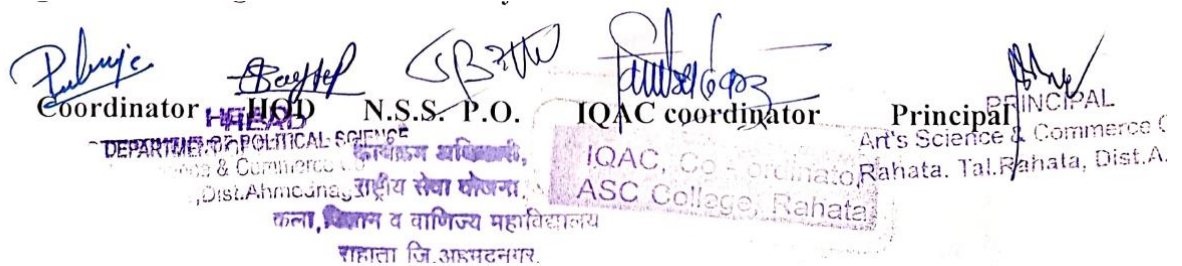 Coordinator HOD N.S.S. P.O. IQAC coordinator Principal
HEAD
DEPARTMENT OF POLITICAL SCIENCE
& Commerce
Dist.Ahmednag
कार्यक्रम अधिकारी,
राष्ट्रीय सेवा योजना,
कला, विज्ञान व वाणिज्य महाविद्यालय
राहाता जि.अहमदनगर.
IQAC, Co-ordinato
ASC College, Rahata
PRINCIPAL
Art's Science & Commerce C
Rahata. Tal.Rahata, Dist.A.